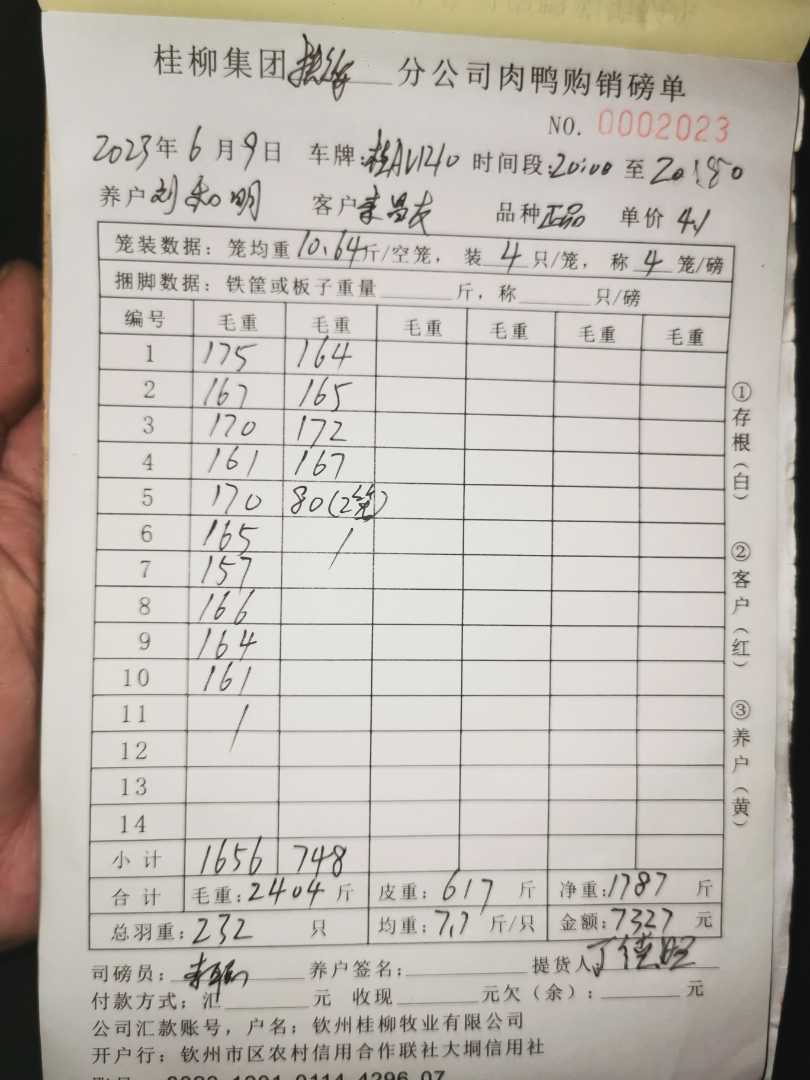 桂柳集团 分公司肉鸭购销磅单
NO. 0002023
2023年6月9日 车牌: 桂AV1240 时间段:20:00至20:50
养户 刘和明 客户 昌友 品种 正品 单价 4.1
笼装数据：笼均重10.64斤/空笼， 装4只/笼， 称4笼/磅
捆脚数据：铁筐或板子重量 斤，称 只/磅
编号 毛重 毛重 毛重 毛重 毛重 毛重
1 175 164
2 167 165
3 170 172
4 161 167
5 170 80(2笼)
6 165 /
7 157
8 166
9 164
10 161
11 /
12
13
14
小计 1656 748
合计 毛重:2404斤 皮重:617斤 净重:1787斤
总羽重:232只 均重:7.7斤/只 金额:7327元
司磅员: 养户签名: 提货人
付款方式: 汇 元 收现 元欠（余）: 元
公司汇款账号，户名：钦州桂柳牧业有限公司
开户行：钦州市区农村信用合作联社大垌信用社
①存根（白）
②客户（红）
③养户（黄）